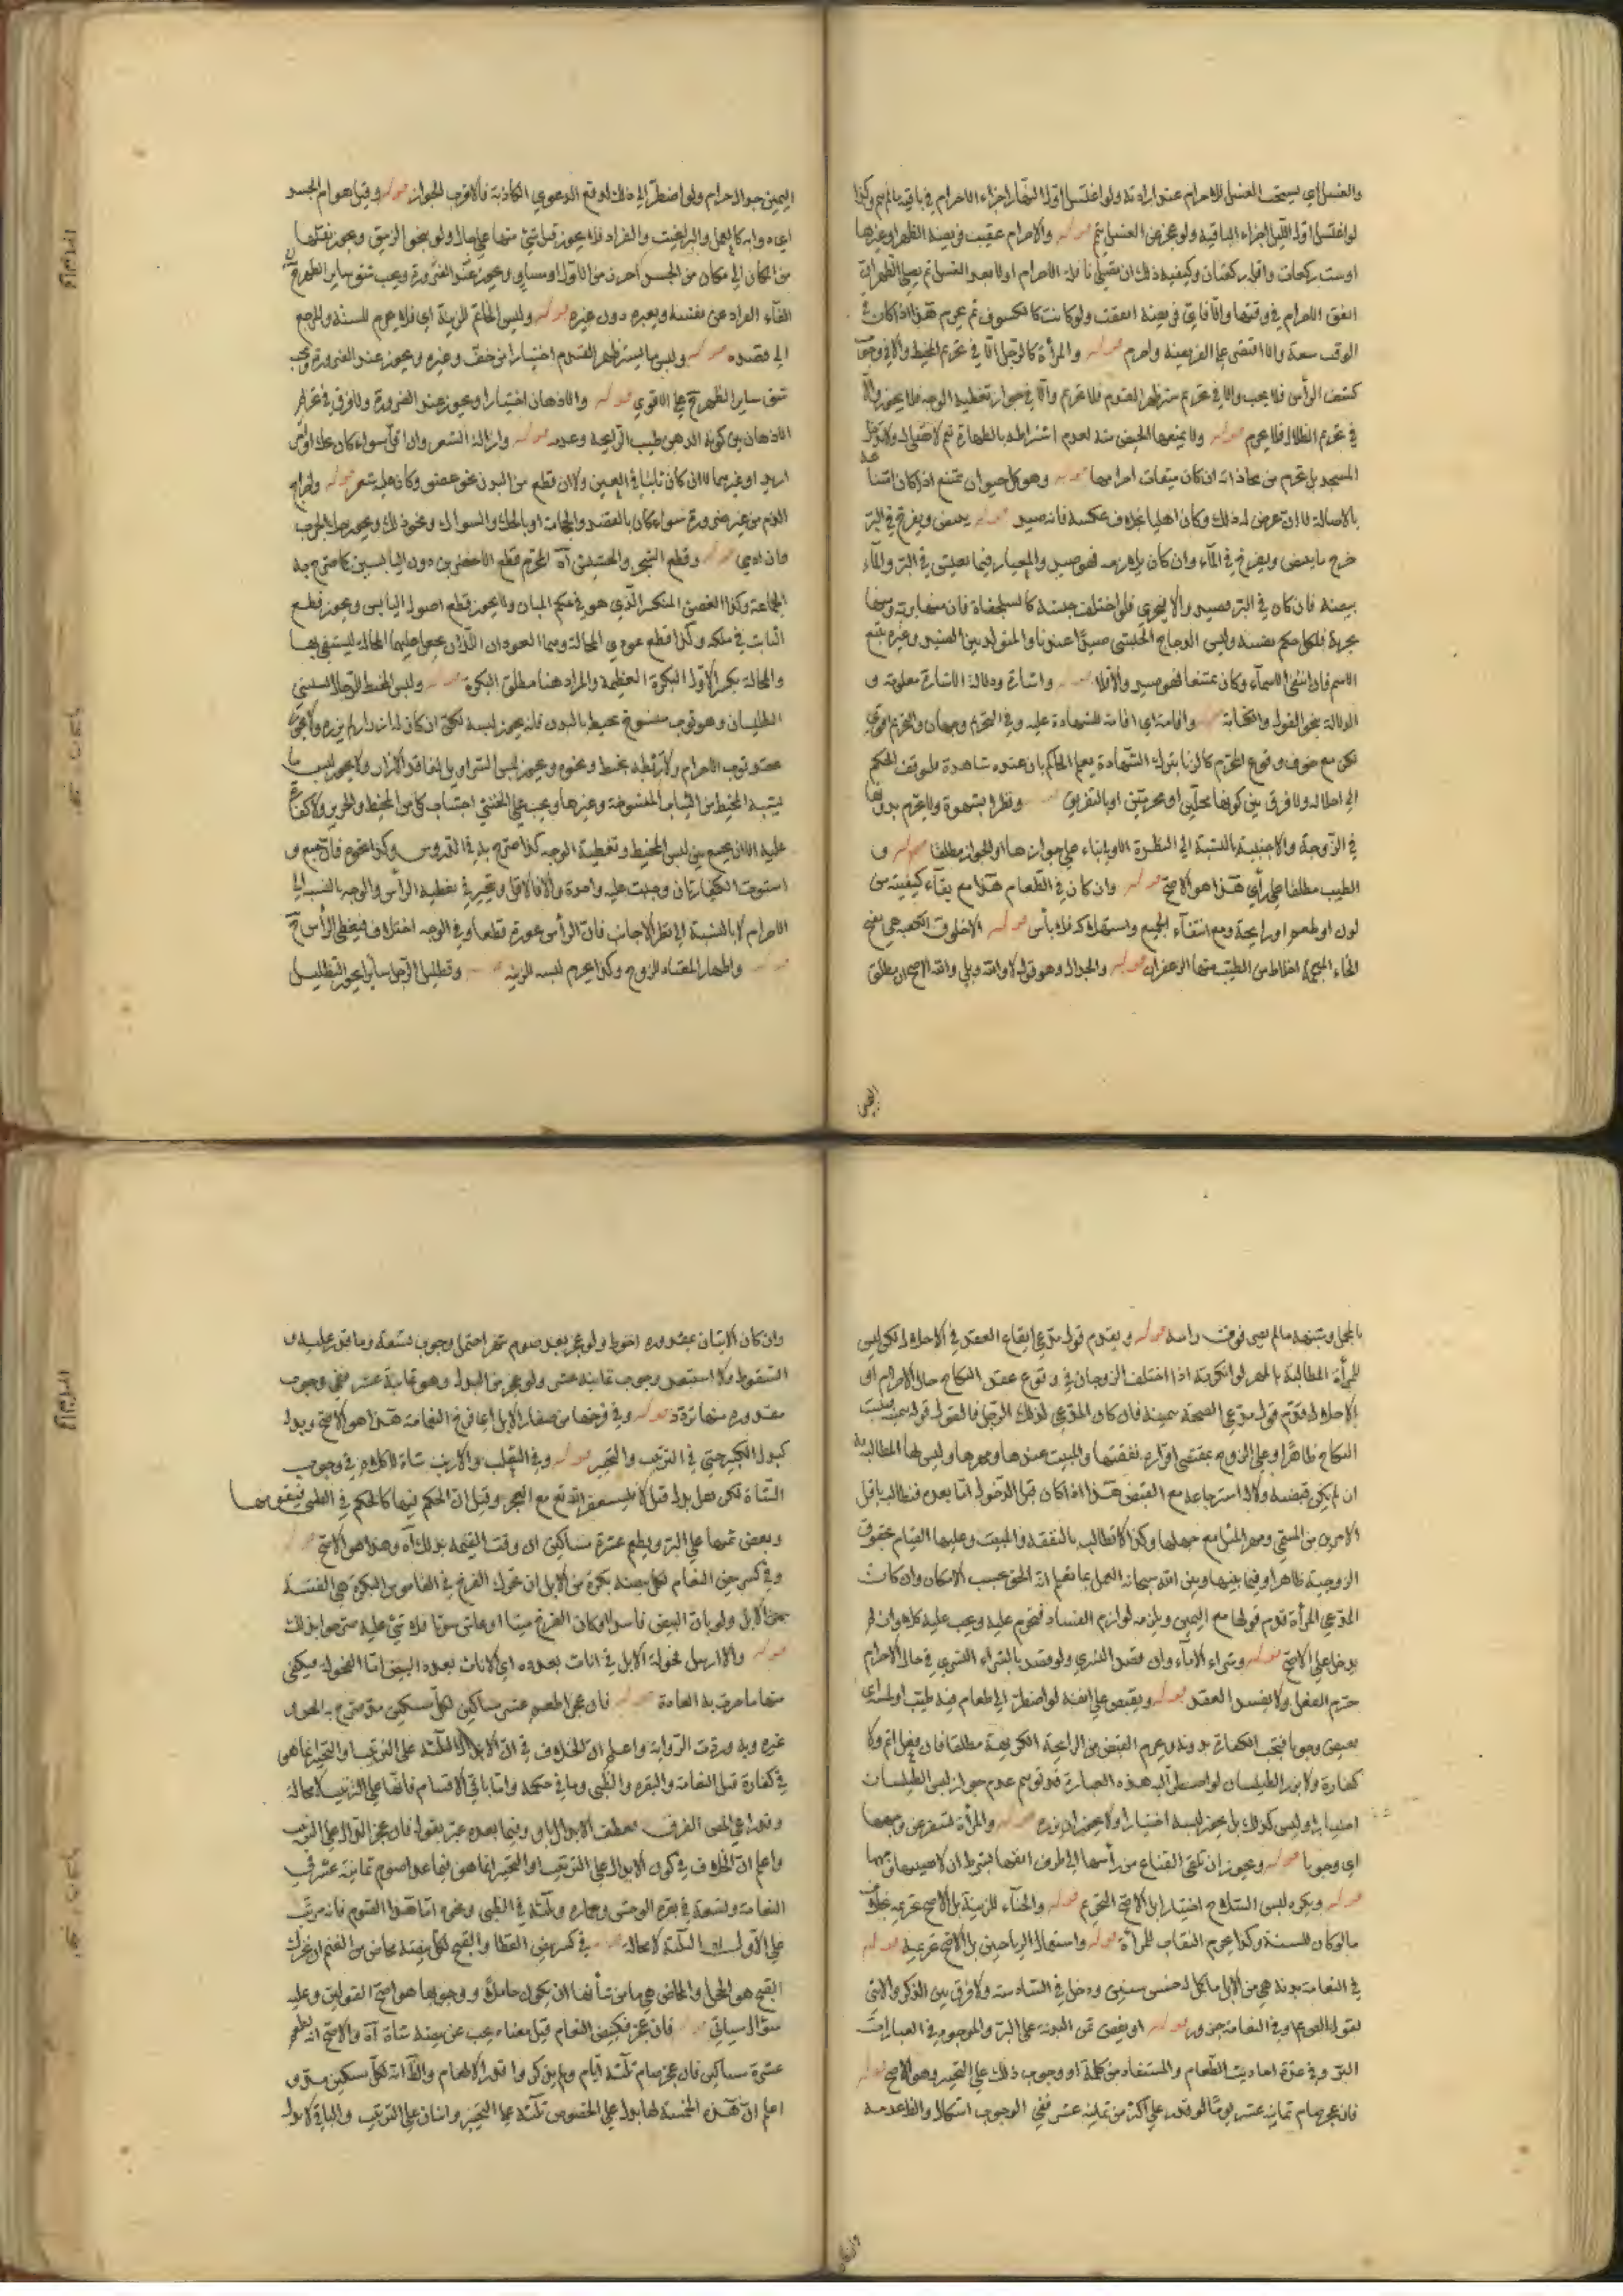 والغسل اي يستحب الغسل للاحرام عند ارادته ولو اغتسل اول النهار اجزاه الاحرام في باقيه ما لم ينم وكذا
لو اغتسل اول الليل اجزاه لباقيه ولو عجز عن الغسل تيمم قوله والاحرام عقيب فريضة الظهر او غيرها
او ست ركعات واقله ركعتان وكيفية ذلك ان يصلي نافلة الاحرام اولا بعد الغسل ثم يصلي الظهر ان
اتفق الاحرام في وقتها والا فاي فريضة اتفقت ولو كانت كالكسوف ثم يحرم هذا اذا كان في
الوقت سعة والا اقتصر على الفريضة واحرم قوله والمرأة كالرجل الا في تحريم المخيط والا في وجوب
كشف الرأس فلا يجب والا في تحريم ستر ظهر القدم فلا يحرم والا في جواز تغطية الوجه فلا يجوز والا
في تحريم الظلال فلا يحرم قوله ولا يمنعها الحيض منه لعدم اشتراطه بالطهارة ثم لا تصلي له ولا تدخل
المسجد بل تحرم من محاذاته ان كان ميقات احرامها قوله وهو كل حيوان ممتنع اذا كان امتناعه
بالاصالة لا ان عرض له ذلك وكان اهليا بخلاف عكسه فانه صيد قوله يبيض ويفرخ في البر
خرج ما يبيض ويفرخ في الماء وان كان يلازمه فهو صيد والمعيار فيما يعيش في البر والماء
ببيضه فان كان في البر فصيد والا فبحري فلو اختلف جنسه كالسلحفاة فان منها برية ومنها
بحرية فلكل حكم نفسه وليس الدجاج الحبشي صيدا عندنا والمتولد بين الصيد وغيره يتبع
الاسم فان انتفى الاسماء وكان ممتنعا فهو صيد والا فلا قوله واشارة ودلالة الاشارة معلومة و
الدلالة بنحو القول والكتابة قوله واقامة اي اقامة للشهادة عليه وفي التحريم وجهان والتحريم اقوى
لكن مع خوف وقوع المحرم كالزنا بترك الشهادة يعلم الحاكم بان عنده شاهدة فلو وقف الحكم
الى احلاله ولا فرق بين كونهما محلين او محرمين او بالتفريق قوله ونظرا بشهوة ولا يحرم بدونها
في الزوجة والاجنبية بالنسبة الى النظرة الاولى بناء على جوازها او للجواز مطلقا قوله و
الطيب مطلقا على رأي هذا هو الاصح قوله وان كان في الطعام هذا مع بقاء كيفيته من
لون او طعم او رايحة ومع انتفاء الجميع واستهلاكه فلا بأس قوله الا خلوق الكعبة هي بفتح
الخاء المعجمة اخلاط من الطيب منها الزعفران قوله والجدال وهو قول لا والله وبلى والله الاصح ان مطلق
اليمين
اليمين جدال حرام ولو اضطر الى ذلك لدفع الدعوى الكاذبة فالاقرب الجواز قوله وقتل هوام الجسد
اي دوابه كالقمل والبراغيث والقراد فلا يجوز قتل شئ منها على حال ولو بنحو الزيبق ويجوز نقلها
من مكان الى مكان من الجسد احرز من الاول او مساو ويجوز عند الضرورة ويجب شق ساير الظهر
القاء القراد عن نفسه وبعيره دون غيره قوله ولبس الخاتم للزينة اي فلا يحرم للسنة والمرجع
الى قصده قوله ولبس ما يستر ظهر القدم اختيارا من خف وغيره ويجوز عند الضرورة ويجب
شق ساير الظهر ح على الاقوى قوله والادهان اختيارا ويجوز عند الضرورة ولا فرق في تحريم
الادهان بين كونه الدهن طيب الرايحة وعدمه قوله وازالة الشعر وان قل سواء كان بحلق او نتف
او غيرهما الا ان كان نابتا في العين والا ان قطع من البدن نحو عضو وكان عليه شعر قوله واخراج
الدم من غير ضرورة سواء كان بالفصد والحجامة او بالحك والسواك ونحو ذلك ويجوز حك الجرب
وان ادمى قوله وقطع الشجر والحشيش آه المحرم قطع الاخضر من دون اليابس كما صرح به
الجماعة وكذا الغصن المنكسر الذي هو في حكم المبان ولا يجوز قطع اصول اليابس ويجوز قطع
النابت في ملكه وكذا قطع عودي المحالة وهما العودان اللذان يجعل عليهما المحالة ليستقى بها
والمحالة بكسر الاول البكرة العظيمة والمراد هنا مطلق البكرة قوله ولبس المخيط للرجال
الطيلسان وهو ثوب منسوج محيط بالبدن فانه يجوز لبسه لكن ان كان له ازرار لم يزره ولا يجوز
عقد ثوب الاحرام ولا ربطه بخيط ونحوه ويجوز لبس السراويل لفاقد الازار ولا يجوز لبس ما
يشبه المخيط من الثياب المنسوجة وغيرها ويجب على الخنثى اجتناب كل من المخيط والحرير ولا كفارة
عليه الا ان يجمع بين لبس المخيط وتغطية الوجه كذا صرح به في الدروس وكذا نحوه فان جمع و
استوت الكفارتان وجبت عليه واحدة والا فالاقل وتخير في تغطية الرأس والوجه بالنسبة الى
الاحرام لا بالنسبة الى نظر الاجانب فان الرأس عورة قطعا وفي الوجه اختلاف فيغطى الرأس ح
قوله واظهار المعتاد للزوج وكذا يحرم لبسه للزينة قوله وتظليل الرجل سائرا يجوز التظليل
بالمحمل وشبهه ما لم يصر فوق رأسه قوله ويقدم قول مدعي ايقاع العقد في الاحلال لكن ليس
للمرأة المطالبة بالمهر لو انكرته اذا اختلف الزوجان في وقوع عقد النكاح حال الاحرام او
الاحلال قدم قول مدعي الصحة بيمينه فان كان المدعي لذلك الرجل فالقول قوله بيمينه فيثبت
النكاح ظاهرا وعلى الزوج بمقتضى اقراره نفقتها والمبيت عندها ومهرها وليس لها المطالبة به
ان لم يكن قبضته ولا له استرجاعه مع القبض هذا اذا كان قبل الدخول اما بعده فتطالب باقل
الامرين من المسمى ومهر المثل مع جهلها وكذا لا تطالب بالنفقة والمبيت وعليها القيام بحقوق
الزوجية ظاهرا وفيما بينها وبين الله سبحانه العمل بما تعلم انه الحق بحسب الامكان وان كانت
المدعي المرأة قدم قولها مع اليمين ويلزمه لوازم الفساد فتحرم عليه ويجب عليه كل المهر وان لم
يدخل على الاصح قوله وشراء الاماء وان قصد التسري ولو قصد بالشراء التسري في حال الاحرام
حرم الفعل ولا يفسد العقد قوله ويقبض على انفه لو اضطر الى طعام فيه طيب او لمسه اي
يقبض وجوبا فتجب الكفارة بدونه ويحرم القبض من الرايحة الكريهة مطلقا فان فعل اثم ولا
كفارة ولا يزر الطيلسان لو اضطر اليه هذه العبارة قد توهم عدم جواز لبس الطيلسان
اختيارا وليس كذلك بل يجوز لبسه اختيارا ولا يجوز ان يزره قوله والمرأة تسفر عن وجهها
اي وجوبا قوله ويجوز ان تلقى القناع من رأسها الى طرف انفها بشرط ان لا يصيب وجهها
قوله ويكره لبس السلاح اختيارا بل الاصح التحريم قوله والحناء للزينة بل الاصح تحريمه بخلاف
ما لو كان للسنة وكذا يحرم النقاب للمرأة قوله واستعمال الرياحين بل الاصح تحريمه قوله
في النعامة بدنة هي من الابل ما كمل له خمس سنين ودخل في السادسة ولا فرق بين الذكر والانثى
لقوله في النعامة جزور قوله او يفض ثمن البدنة على البر والموجود في العبارات
البر وفي عدة احاديث الطعام والمستفاد من كلمة او وجوب ذلك على التخيير وهو الاصح قوله
فان عجز صام ثمانية عشر يوما لو قدر على اكثر من ثمانية عشر ففي الوجوب اشكال والقاعدة
وان كان
وان كان الاتيان بمقدوره احوط ولو عجز بعد صوم شهر احتمل وجوب تسعة وما قدر عليه و
السقوط ولا استبعد وجوب ثمانية عشر ولو عجز عن البدل وهو ثمانية عشر ففي وجوب
مقدوره منها تردد قوله وفي فرخها من صغار الابل اي فرخ النعامة هذا هو الاصح وبدله
كبدل الكبير حتى في الترتيب والتخيير قوله وفي الثعلب والارنب شاة لا كلام في وجوب
الشاة لكن هل بدل قيل لا فليستغفر الله تع مع العجز وقيل ان الحكم فيها كالحكم في الظبي فيقومها
ويفض ثمنها على البر ويطعم عشرة مساكين ان وقت القيمة بذلك آه وهذا هو الاصح قوله
وفي كسر بيض النعام لكل بيضة بكرة من الابل ان تحرك الفرخ في القاموس البكرة هي الفتية
من الابل ولو بان البيض فاسدا او كان الفرخ ميتا او عاش سويا فلا شئ عليه صرحوا بذلك
قوله والا ارسل فحولة الابل في اناث بعدده اي الاناث بعدد البيض اما الفحولة فيكفي
منها ما جرت به العادة قوله فان عجز اطعم عشر مساكين لكل مسكين مد صرح به المحرر و
غيره وبه وردت الرواية واعلم ان الخلاف في ان الابدال الثلثة على الترتيب او التخيير انما هي
في كفارة قتل النعامة والبقرة والظبي وما في حكمه واما باقي الاقسام فانها على الترتيب لا محالة
وقد راعى المص الفرق بعطف الابدال باو وفيما بعده عبر بقوله فان عجز الدال على الترتيب
واعلم ان الخلاف في كون الابدال على الترتيب او التخيير انما هو فيما عدا صوم ثمانية عشر في
النعامة وتسعة في بقرة الوحش وحماره وثلثة في الظبي ونحوه اما هذا الصوم فانه مرتب
على الاول الثلثة لا محالة قوله في كسر بيض القطا والقبج لكل بيضة مخاض من الغنم ان تحرك
القبج هو الحجل والمخاض هي ما من شأنها ان يكون حاملا ووجوبها هو اصح القولين وعليه
سؤال سياتي قوله فان عجز فكبيض النعام قيل معناه يجب عن بيضة شاة آه والاصح انه يطعم
عشرة مساكين فان عجز صام ثلثة ايام ولم يذكروا قدر الاطعام والظ انه لكل مسكين مد و
اعلم ان هذه الخمسة لها بدل على الخصوص ثلثة على التخيير واثنان على الترتيب والباقي لا بدل